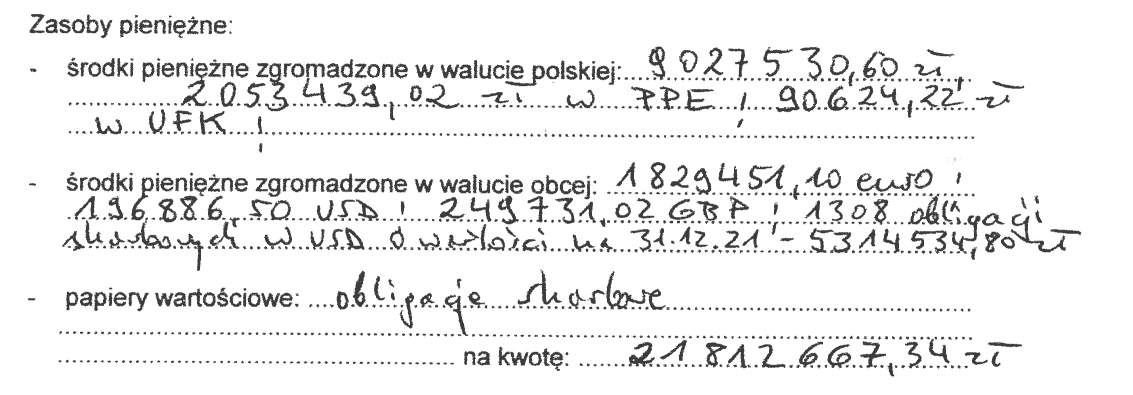 Zasoby pieniężne:
- środki pieniężne zgromadzone w walucie polskiej: 9027530,60 zł,
2053439,02 zł w PPE ; 90624,22 zł
w UFK ;
- środki pieniężne zgromadzone w walucie obcej: 1829451,10 euro ;
196886,50 USD ; 249731,02 GBP ; 1308 obligacji
skarbowych w USD o wartości na 31.12.21 - 5314534,80 zł
- papiery wartościowe: obligacje skarbowe
na kwotę: 21 812 667,34 zł